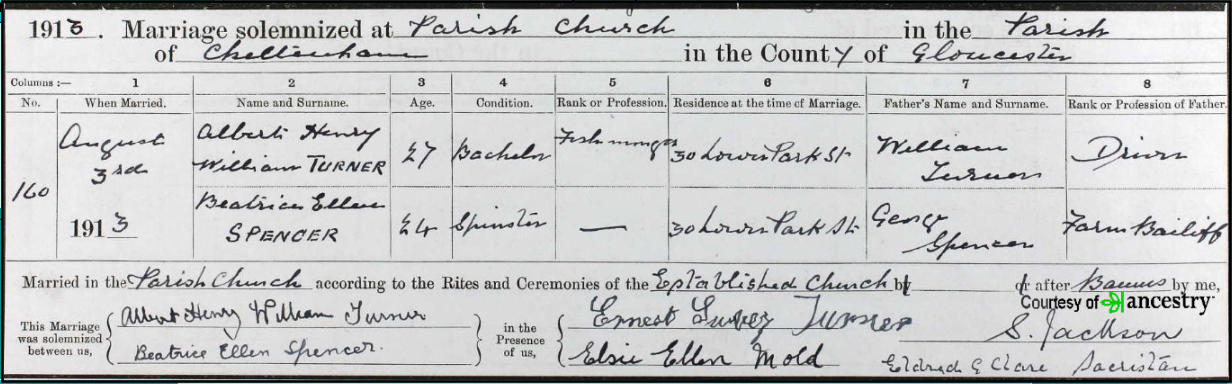 1913. Marriage solemnized at Parish Church in the Parish
of Cheltenham in the County of Gloucester
Columns :— 1 2 3 4 5 6 7 8
No. When Married. Name and Surname. Age. Condition. Rank or Profession. Residence at the time of Marriage. Father's Name and Surname. Rank or Profession of Father.
160 August 3rd 1913
Albert Henry William TURNER 27 Bachelor Fishmonger 30 Lower Park St William Turner Driver
Beatrice Ellen SPENCER 24 Spinster — 30 Lower Park St George Spencer Farm Bailiff
Married in the Parish Church according to the Rites and Ceremonies of the Established Church by or after Banns by me,
Courtesy of ancestry
This Marriage was solemnized between us,
Albert Henry William Turner
Beatrice Ellen Spencer.
in the Presence of us,
Ernest Turner
Elsie Ellen Mold
S. Jackson
Eldred G Clare Sacristan